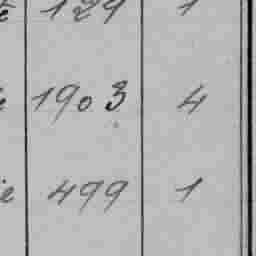 129 1
1903 4
499 1